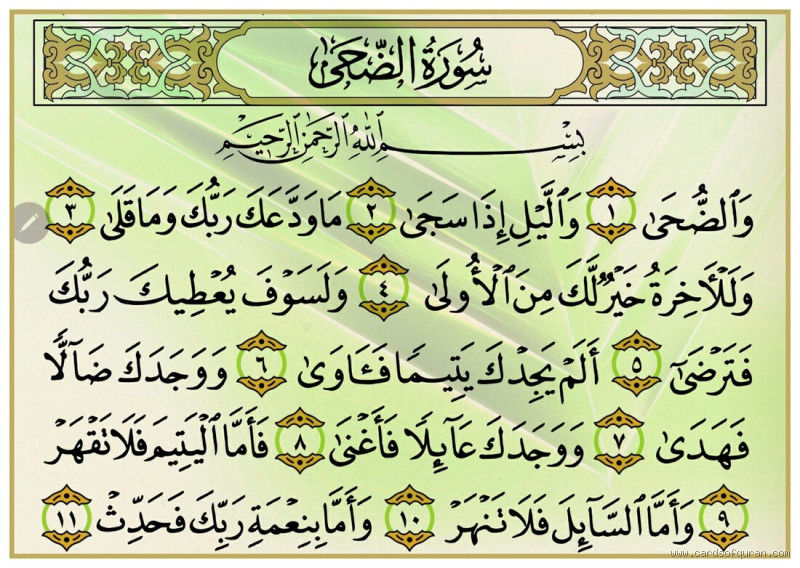 سُورَةُ الضُّحَىٰ
بِسْمِ اللَّهِ الرَّحْمَٰنِ الرَّحِيمِ
وَٱلضُّحَىٰ ١ وَٱلَّيْلِ إِذَا سَجَىٰ ٢ مَا وَدَّعَكَ رَبُّكَ وَمَا قَلَىٰ ٣
وَلَلْأَخِرَةُ خَيْرٌ لَّكَ مِنَ ٱلْأُولَىٰ ٤ وَلَسَوْفَ يُعْطِيكَ رَبُّكَ
فَتَرْضَىٰٓ ٥ أَلَمْ يَجِدْكَ يَتِيمًا فَـَٔاوَىٰ ٦ وَوَجَدَكَ ضَآلًّا
فَهَدَىٰ ٧ وَوَجَدَكَ عَآئِلًا فَأَغْنَىٰ ٨ فَأَمَّا ٱلْيَتِيمَ فَلَا تَقْهَرْ
٩ وَأَمَّا ٱلسَّآئِلَ فَلَا تَنْهَرْ ١٠ وَأَمَّا بِنِعْمَةِ رَبِّكَ فَحَدِّثْ ١١
www.cardsofquran.com